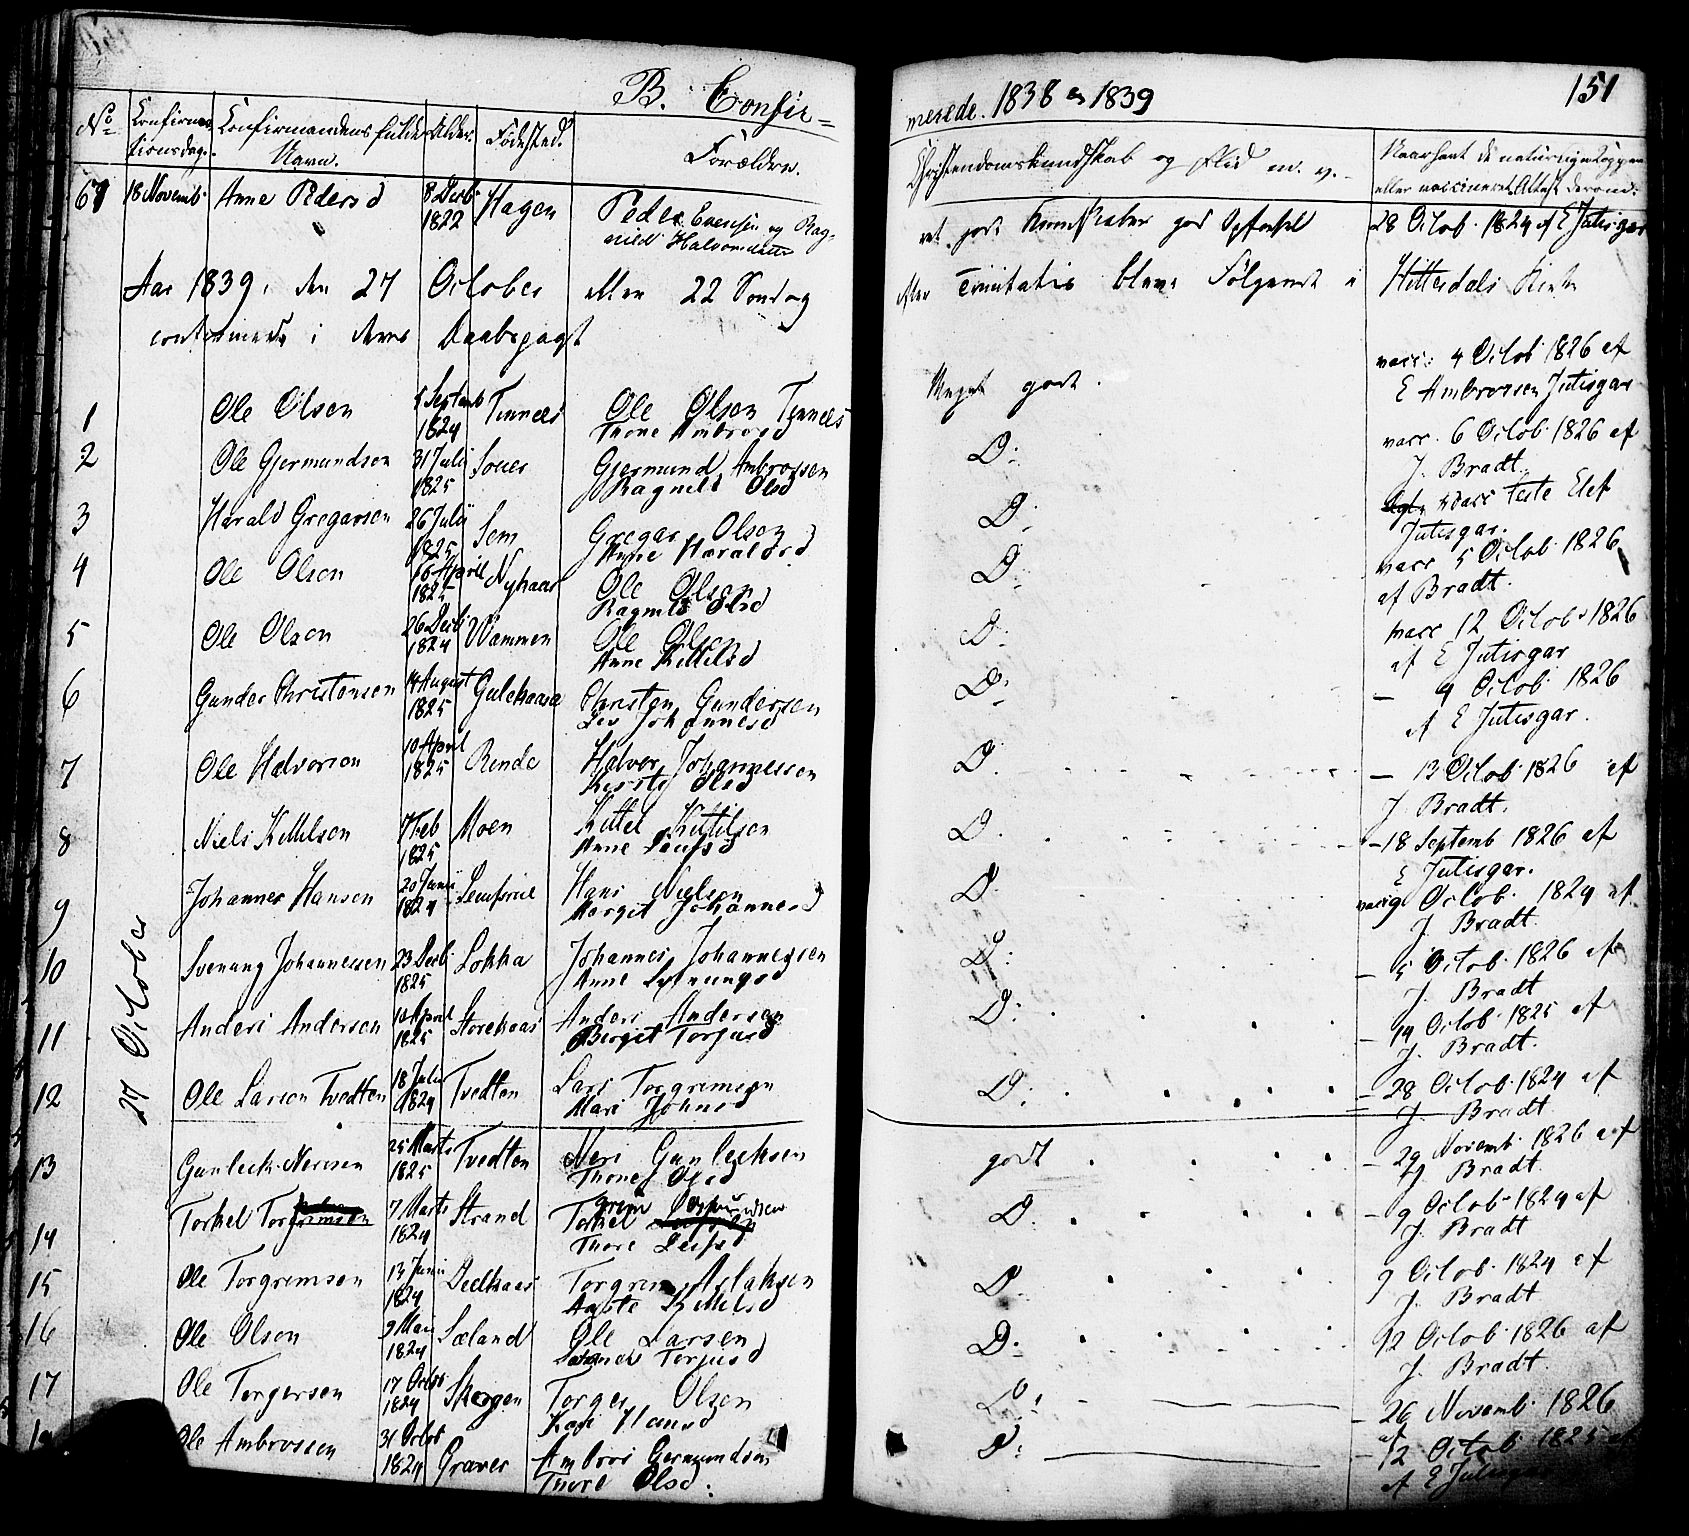 B. Confir=
merede. 1838 & 1839
151
No
Confirma-
tionsdag.
Confirmandens fulde
Navn.
Alder.
Fødested.
Forældre.
Christendomskundskab og Flid m. v.
Naar havt de naturlige Kopper
eller vaccineret Attest derom.
67 18 Novemb. Anne Pedersd 8 Decb 1822 Hagen Peder Evensen og Rag-
nild Halvorsdatter
godt Kundskaber god Opførsel
28 Octob. 1824 af E Jutisgar
Aar 1839, den 27 October eller 22 Søndag
efter Trinitatis bleve Følgende i Hitterdals Kirke
confirmerede i deres Daabspagt
1 Ole Olsen 4 Septemb 1824 Tinnees Ole Olsen Tinnees
Thone Ambrosd
Meget godt.
vacc: 4 Octob 1826 af
E Ambrossen Jutisgar
2 Ole Gjermundsen 31 Juli 1825 Souer Gjermund Ambrossen
Ragnild Olsd
D:
vacc. 6 Octob. 1826 af
J. Bradt.
3 Harald Gregarsen 26 Julii 1825 Sem Gregar Olsen
Anne Haraldsd
D:
vacc teste Elef
Jutisgar.
4 Ole Olsen 16 April 1825 Nyhaus Ole Olsen
Ragnild Olsd
D:
vacc 5 Octob. 1826
af Bradt.
5 Ole Olsen 26 Decb 1824 Wammen Ole Olsen
Anne Kittelsd
D:
vacc 12 Octob. 1826
af E Jutisgar
6 Gunder Christensen 14 August 1825 Gulekaasa Christen Gundersen
Liv Johannesd
D:
— 4 Octob. 1826
af E Jutisgar.
7 Ole Halvorsen 10 April 1825 Rende Halvor Johannessen
Kirsti Olsd
D.
— 13 Octob. 1826 af
J. Bradt.
8 Niels Kittilsen 7 Feb 1825 Moen Kittel Kittilsen
Anne Leufsd
D.
— 18 Septemb 1826 af
E Jutisgar.
9 Johannes Hansen 20 Junii 1824 Hans Nielsen
Margit Johannesd
D.
vacc 9 Octob. 1824 af
J. Bradt.
10 Svenung Johannessen 23 Decb. 1825 Lokka Johannes Johannessen
Anne Svenungsd
D:
— 5 Octob. 1826 af
J. Bradt
11 Anders Andersen 10 April 1825 Storekaas Anders Andersen
Bergit Torjusd
D:
— 14 Octob. 1825 af
J. Bradt.
27 October
12 Ole Larsen Tvedten 18 Julii 1824 Tvedten Lars Torgrimsen
Mari Johnsd
D:
— 28 Octob. 1824 af
J. Bradt
13 Gunleck Nerisen 25 Marts 1825 Tvedten Neri Gunlecksen
Thone Olsd
godt
— 29 Novemb. 1826 af
J. Bradt.
14 Torkel 7 Marts 1824 Strand
Thore Leifsd
D.
— 9 Octob. 1824 af
J. Bradt
15 Ole Torgrimsen 13 Junii 1824 Torgrim Aslaksen
Aaste Kittelsd
D.
9 Octob. 1824 af
J. Bradt
16 Ole Olsen 9 Mai 1824 Sæland Ole Larsen
Torjusd
D.
12 Octob. 1826 af
J. Bradt.
17 Ole Torgersen 17 Octob 1824 Skogen Torger Olsen
Kari Hansd
D:
— 26 Novemb. 1826
af
Ole Ambrossen 31 Octob 1824 Graver Ambros Germundsen
Thore Olsd.
D:
— 12 Octob 1825 af
af E Jutisgar